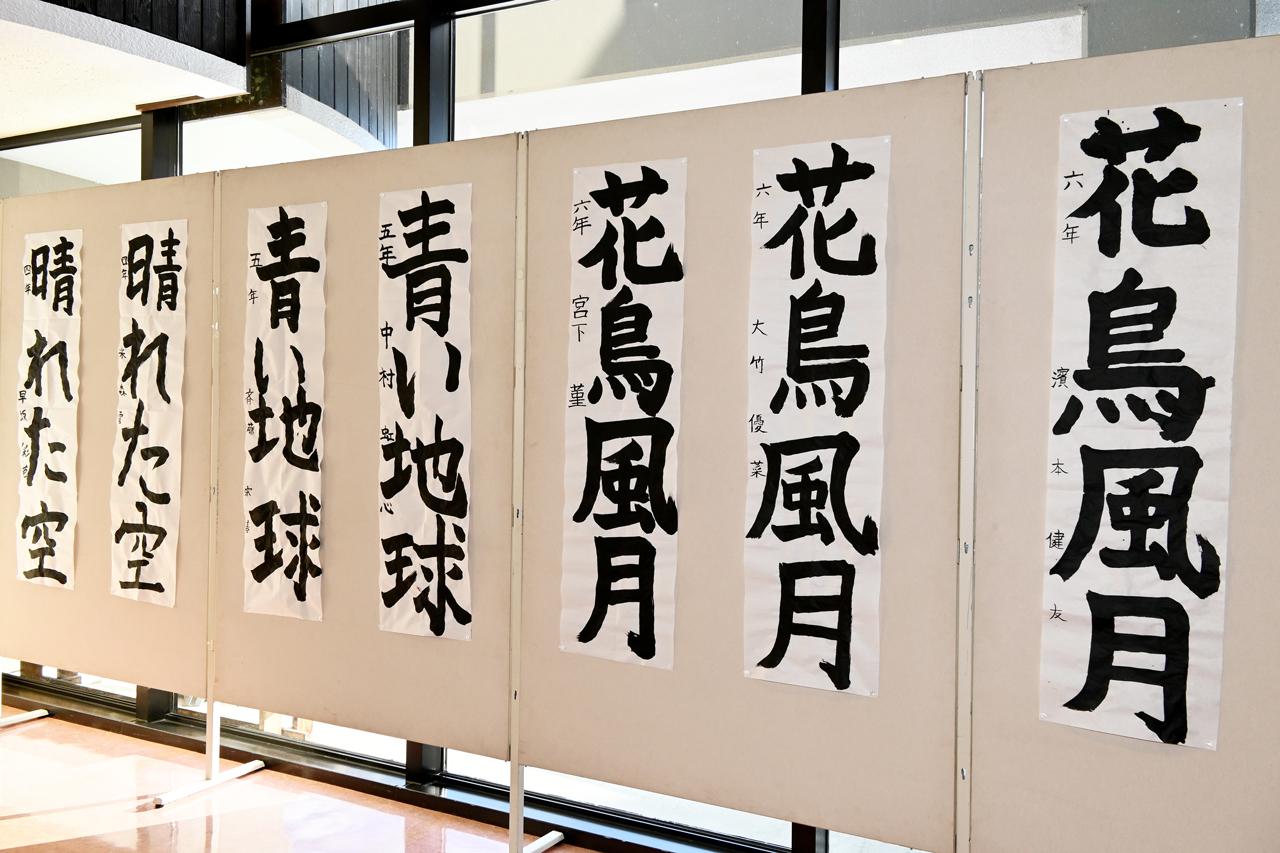 花鳥風月
六年 濱本 健友
花鳥風月
六年 大竹 優菜
花鳥風月
六年 宮下 菫
青い地球
五年 中村
青い地球
五年
晴れた空
四年
晴れた空
四年 早坂